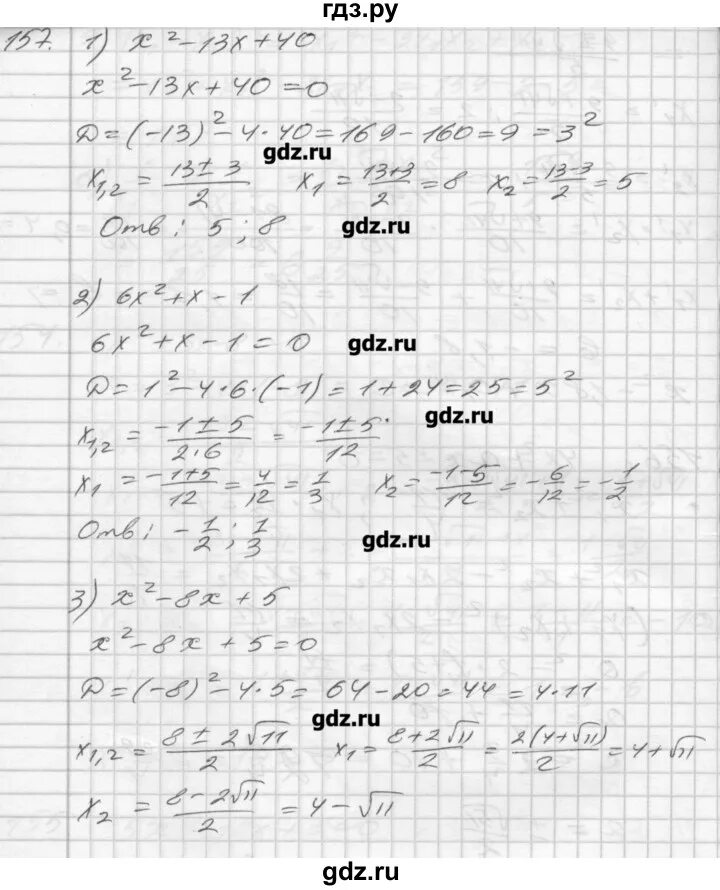 гдз.ру
157. 1) x² - 13x + 40
x² - 13x + 40 = 0
D = (-13)² - 4·40 = 169 - 160 = 9 = 3²
gdz.ru
x₁,₂ = (13 ± 3)/2 x₁ = (13+3)/2 = 8 x₂ = (13-3)/2 = 5
Отв: 5; 8
gdz.ru
2) 6x² + x - 1
6x² + x - 1 = 0
gdz.ru
D = 1² - 4·6·(-1) = 1 + 24 = 25 = 5²
gdz.ru
x₁,₂ = (-1 ± 5)/(2·6) = (-1 ± 5)/12
x₁ = (-1+5)/12 = 4/12 = 1/3 x₂ = (-1-5)/12 = -6/12 = -1/2
Отв: -1/2; 1/3
gdz.ru
3) x² - 8x + 5
x² - 8x + 5 = 0
D = (-8)² - 4·5 = 64 - 20 = 44 = 4·11
gdz.ru
x₁,₂ = (8 ± 2√11)/2 x₁ = (8+2√11)/2 = 2(4+√11)/2 = 4+√11
x₂ = (8-2√11)/2 = 4-√11
gdz.ru